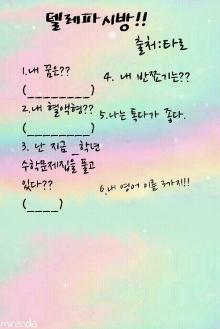 텔레파시방!!
출처:타로
1.내 꿈은??
(________)
2.내 혈액형??
(________)
3. 난 지금 _학년
수학문제집을 풀고
있다??
(____)
4. 내 반쪽기는??
5.나는 톡다가 좋다.
6.내 영어 이름 3가지!!
miranda